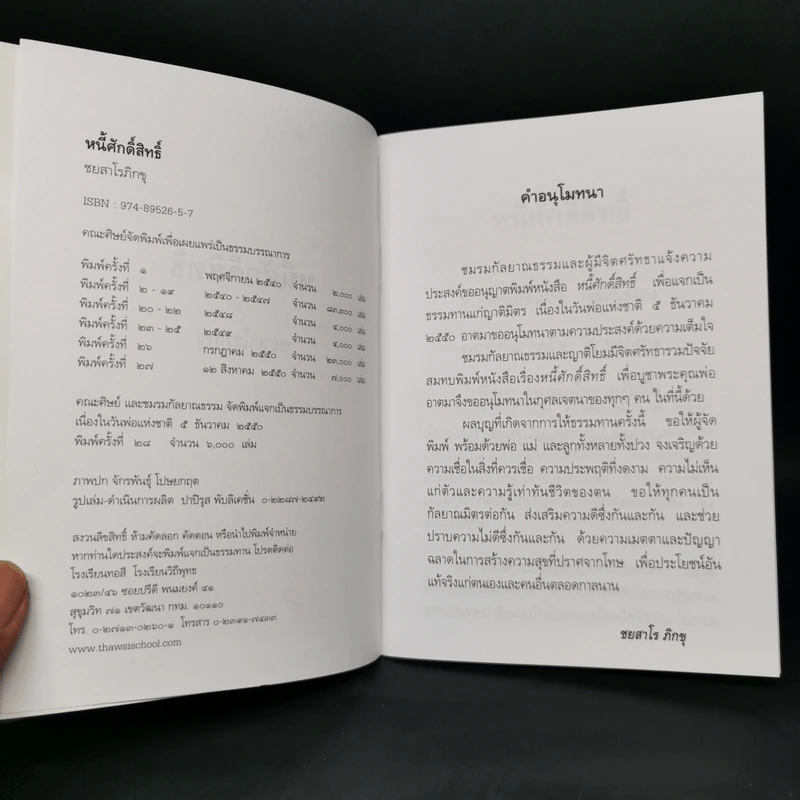 หนี้ศักดิ์สิทธิ์
ชยสาโรภิกขุ
ISBN : 974-89526-5-7
คณะศิษย์จัดพิมพ์เพื่อเผยแพร่เป็นธรรมบรรณาการ
พิมพ์ครั้งที่ ๑ พฤศจิกายน ๒๕๔๐ จำนวน ๒,๐๐๐ เล่ม
พิมพ์ครั้งที่ ๒ - ๑๙ ๒๕๔๐ - ๒๕๔๗ จำนวน ๘๓,๓๐๐ เล่ม
พิมพ์ครั้งที่ ๒๐ - ๒๒ ๒๕๔๘ จำนวน ๔,๐๐๐ เล่ม
พิมพ์ครั้งที่ ๒๓ - ๒๕ ๒๕๔๙ จำนวน ๔,๐๐๐ เล่ม
พิมพ์ครั้งที่ ๒๖ กรกฎาคม ๒๕๕๐ จำนวน ๒๓,๐๐๐ เล่ม
พิมพ์ครั้งที่ ๒๗ ๑๒ สิงหาคม ๒๕๕๐ จำนวน ๗,๐๐๐ เล่ม
คณะศิษย์ และชมรมกัลยาณธรรม จัดพิมพ์แจกเป็นธรรมบรรณาการ
เนื่องในวันพ่อแห่งชาติ ๕ ธันวาคม ๒๕๕๐
พิมพ์ครั้งที่ ๒๘ จำนวน ๖,๐๐๐ เล่ม
ภาพปก จักรพันธุ์ โปษยกฤต
รูปเล่ม-ดำเนินการผลิต ปาปิรุส พับลิเคชั่น ๐-๒๒๘๗-๒๔๙๒
สงวนลิขสิทธิ์ ห้ามคัดลอก ตัดตอน หรือนำไปพิมพ์จำหน่าย
หากท่านใดประสงค์จะพิมพ์แจกเป็นธรรมทาน โปรดติดต่อ
โรงเรียนทอสี โรงเรียนวิถีพุทธ
๑๐๒๓/๔๖ ซอยปรีดี พนมยงค์ ๔๑
สุขุมวิท ๗๑ เขตวัฒนา กทม. ๑๐๑๑๐
โทร. ๐-๒๗๑๓-๐๒๖๐-๑ โทรสาร ๐-๒๓๙๑-๗๔๓๓
www.thawsischool.com
คำอนุโมทนา
ชมรมกัลยาณธรรมและผู้มีจิตศรัทธาแจ้งความ
ประสงค์ขออนุญาตพิมพ์หนังสือ หนี้ศักดิ์สิทธิ์ เพื่อแจกเป็น
ธรรมทานแก่ญาติมิตร เนื่องในวันพ่อแห่งชาติ ๕ ธันวาคม
๒๕๕๐ อาตมาขออนุโมทนาตามความประสงค์ด้วยความเต็มใจ
ชมรมกัลยาณธรรมและญาติโยมมีจิตศรัทธารวมปัจจัย
สมทบพิมพ์หนังสือเรื่องหนี้ศักดิ์สิทธิ์ เพื่อบูชาพระคุณพ่อ
อาตมาจึงขออนุโมทนาในกุศลเจตนาของทุกๆ คน ในที่นี้ด้วย
ผลบุญที่เกิดจากการให้ธรรมทานครั้งนี้ ขอให้ผู้จัด
พิมพ์ พร้อมด้วยพ่อ แม่ และลูกทั้งหลายทั้งปวง จงเจริญด้วย
ความเชื่อในสิ่งที่ควรเชื่อ ความประพฤติที่งดงาม ความไม่เห็น
แก่ตัวและความรู้เท่าทันชีวิตของตน ขอให้ทุกคนเป็น
กัลยาณมิตรต่อกัน ส่งเสริมความดีซึ่งกันและกัน และช่วย
ปราบความไม่ดีซึ่งกันและกัน ด้วยความเมตตาและปัญญา
ฉลาดในการสร้างความสุขที่ปราศจากโทษ เพื่อประโยชน์อัน
แท้จริงแก่ตนเองและคนอื่นตลอดกาลนาน
ชยสาโร ภิกขุ